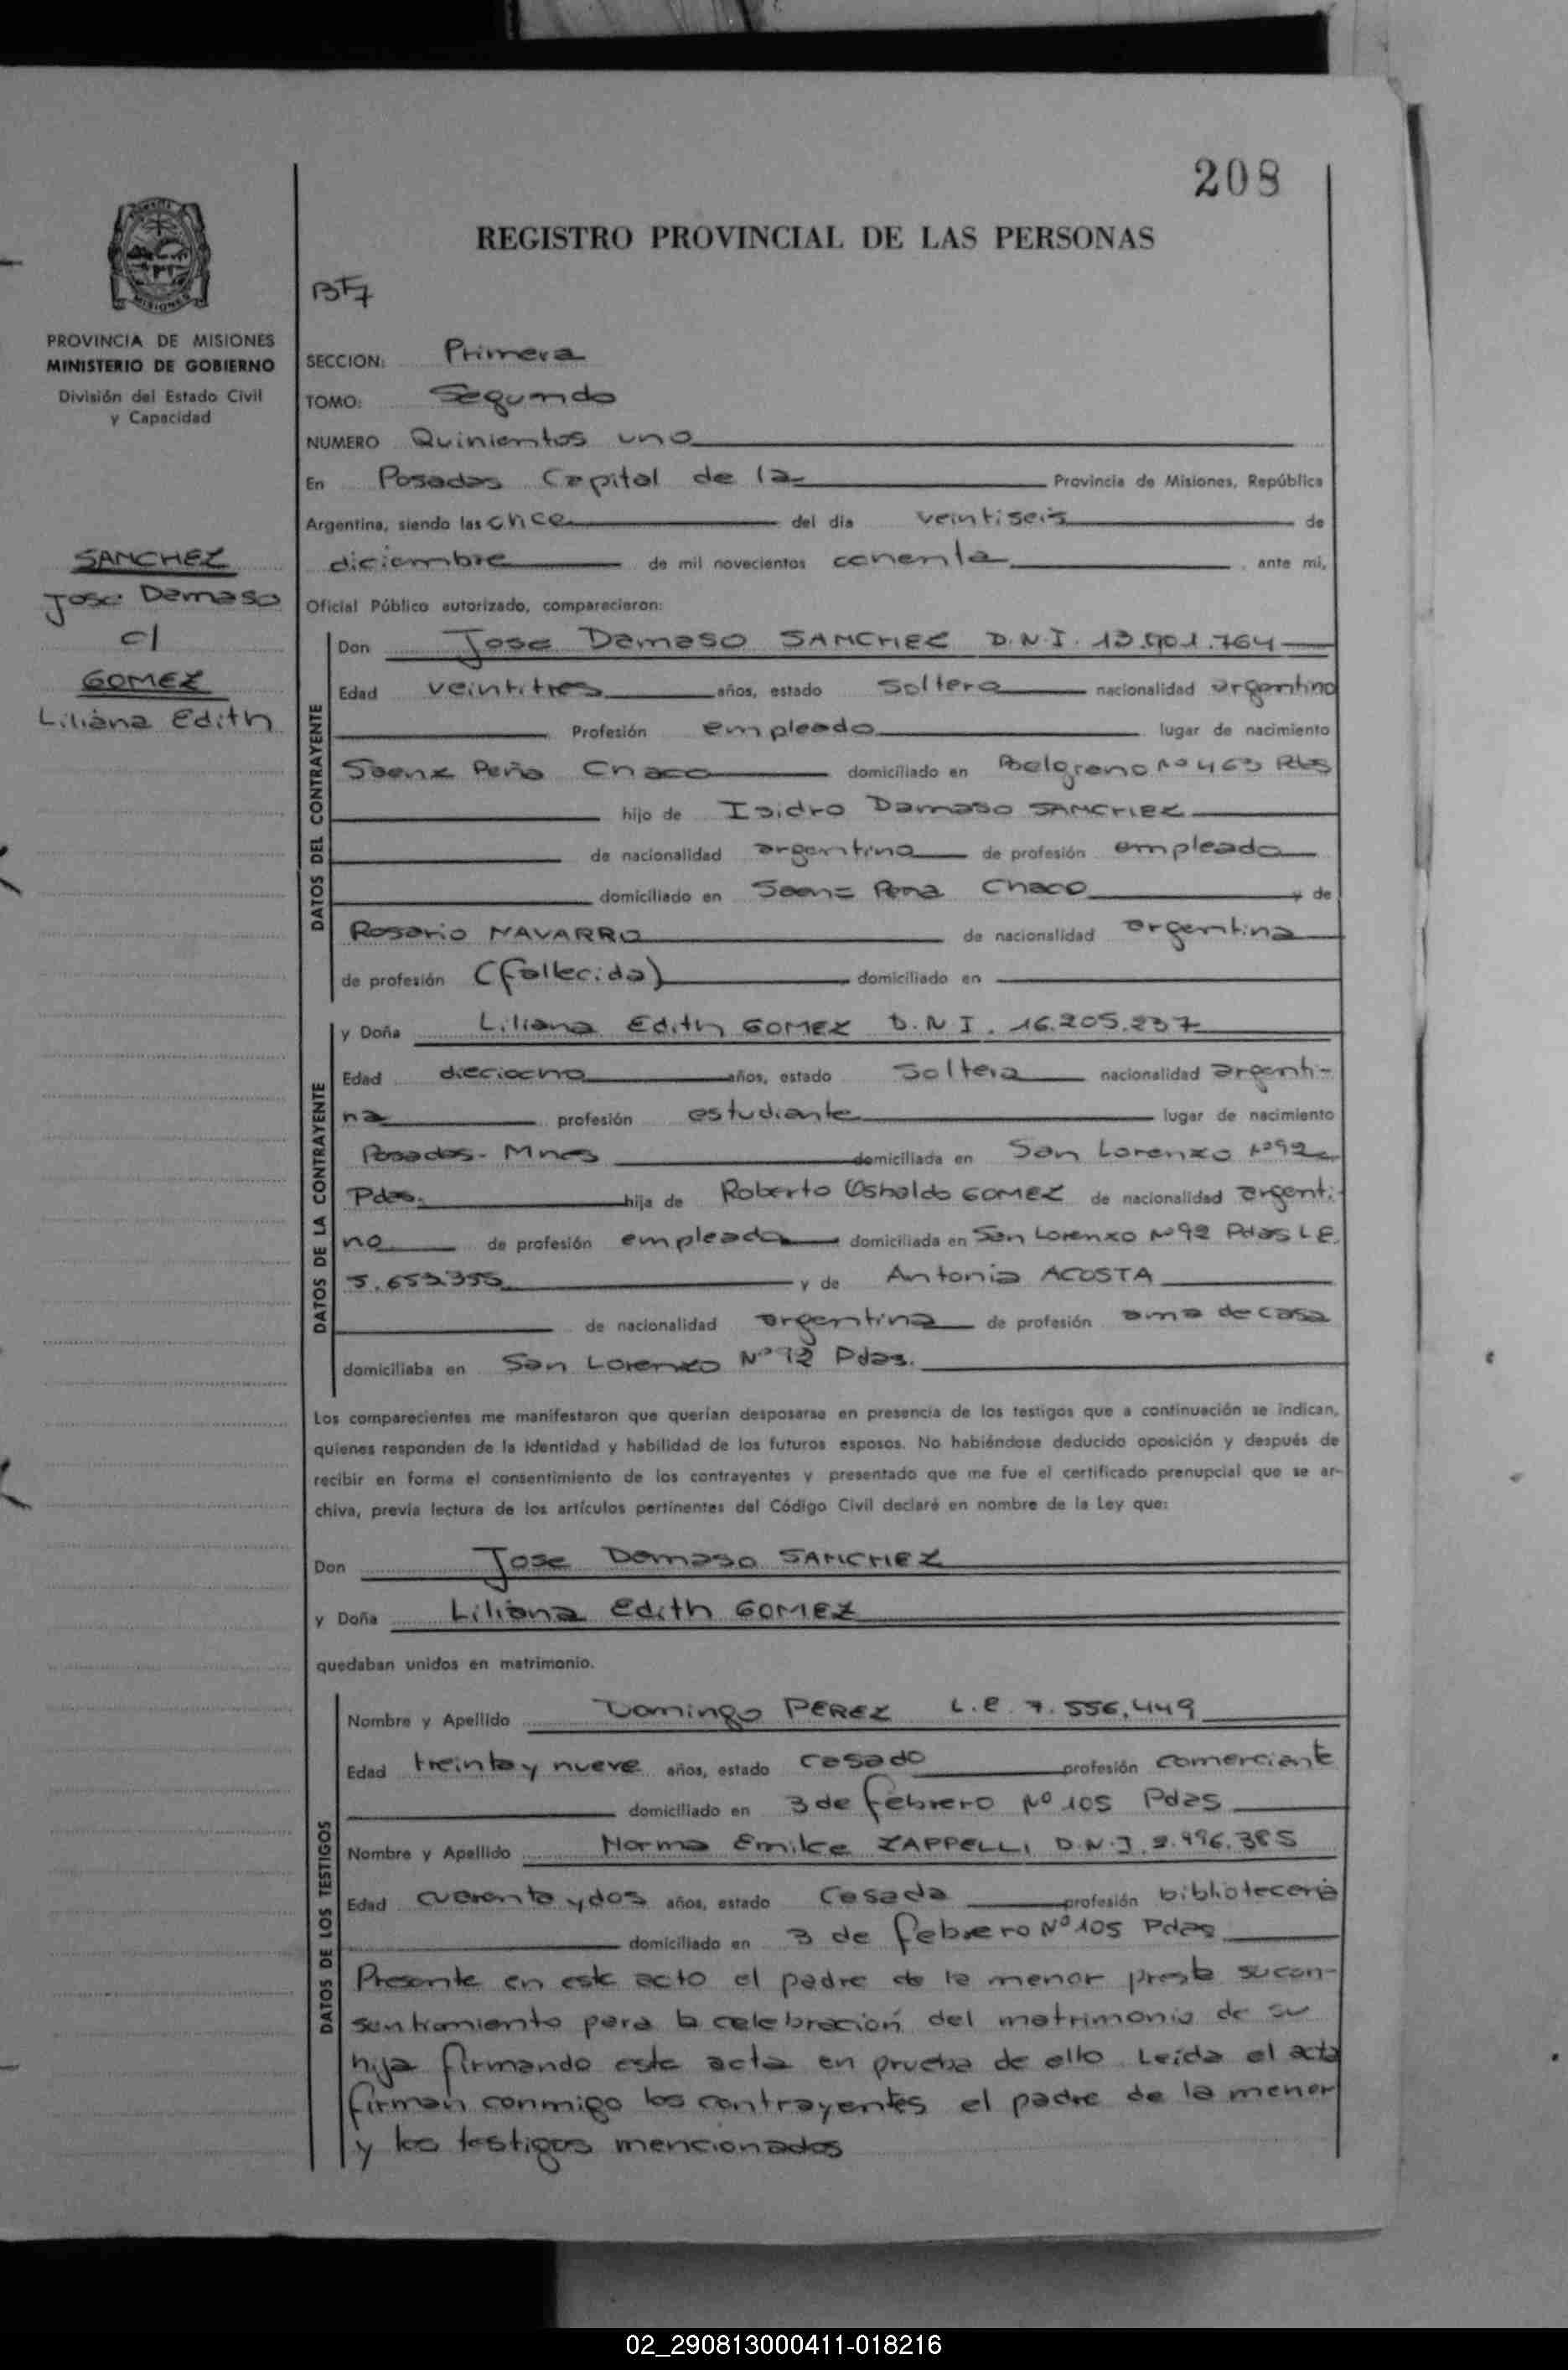 208
REGISTRO PROVINCIAL DE LAS PERSONAS
MISIONES
PROVINCIA DE MISIONES
MINISTERIO DE GOBIERNO
División del Estado Civil
y Capacidad
SANCHEZ
Jose Damaso
c/
GOMEZ
Liliana Edith
SECCION: Primera
TOMO: Segundo
NUMERO Quinientos uno
En Posadas Capital de la Provincia de Misiones, República
Argentina, siendo las once del dia veintiseis de
diciembre de mil novecientos ante mi,
Oficial Público autorizado, comparecieron:
DATOS DEL CONTRAYENTE
Don Jose Damaso SANCHEZ D.N.I. 13.901.764
Edad veintitres años, estado Soltero nacionalidad argentino
Profesión empleado lugar de nacimiento
Saenz Peña Chaco domiciliado en Belgrano Nº 463 Pdas
hijo de Isidro Damaso SANCHEZ
de nacionalidad argentina de profesión empleado
domiciliado en Saenz Pena Chaco y de
Rosario NAVARRO de nacionalidad argentina
de profesión (fallecida) domiciliado en
DATOS DE LA CONTRAYENTE
y Doña Liliana Edith GOMEZ D.N.I. 16.205.237
Edad dieciocho años, estado Soltera nacionalidad argenti-
na profesión estudiante lugar de nacimiento
Posadas- Mnes domiciliada en San Lorenzo Nº92
Pdas. hija de Roberto Osbaldo GOMEZ de nacionalidad argenti-
no de profesión empleado domiciliada en San Lorenzo Nº92 Pdas L.E.
y de Antonia ACOSTA
de nacionalidad argentina de profesión ama de casa
domiciliaba en San Lorenzo Nº 92 Pdas.
Los comparecientes me manifestaron que querían desposarse en presencia de los testigos que a continuación se indican,
quienes responden de la identidad y habilidad de los futuros esposos. No habiéndose deducido oposición y después de
recibir en forma el consentimiento de los contrayentes y presentado que me fue el certificado prenupcial que se ar-
chiva, previa lectura de los artículos pertinentes del Código Civil declaré en nombre de la Ley que:
Don Jose Damaso SANCHEZ
y Doña Liliana Edith GOMEZ
quedaban unidos en matrimonio.
DATOS DE LOS TESTIGOS
Nombre y Apellido Domingo PEREZ L.E. 7.556.449
Edad treinta y nueve años, estado casado profesión comerciante
domiciliado en 3 de febrero Nº 105 Pdas
Nombre y Apellido Norma ZAPPELLI D.N.I.
Edad cuarenta y dos años, estado Casada profesión bibliotecaria
domiciliado en 3 de febrero Nº 105 Pdas
Presente en este acto el padre de la menor presta su con-
sentimiento para la celebración del matrimonio de su
hija firmando este acta en prueba de ello. Leida el acta
firman conmigo los contrayentes el padre de la menor
y los testigos mencionados
02_290813000411-018216